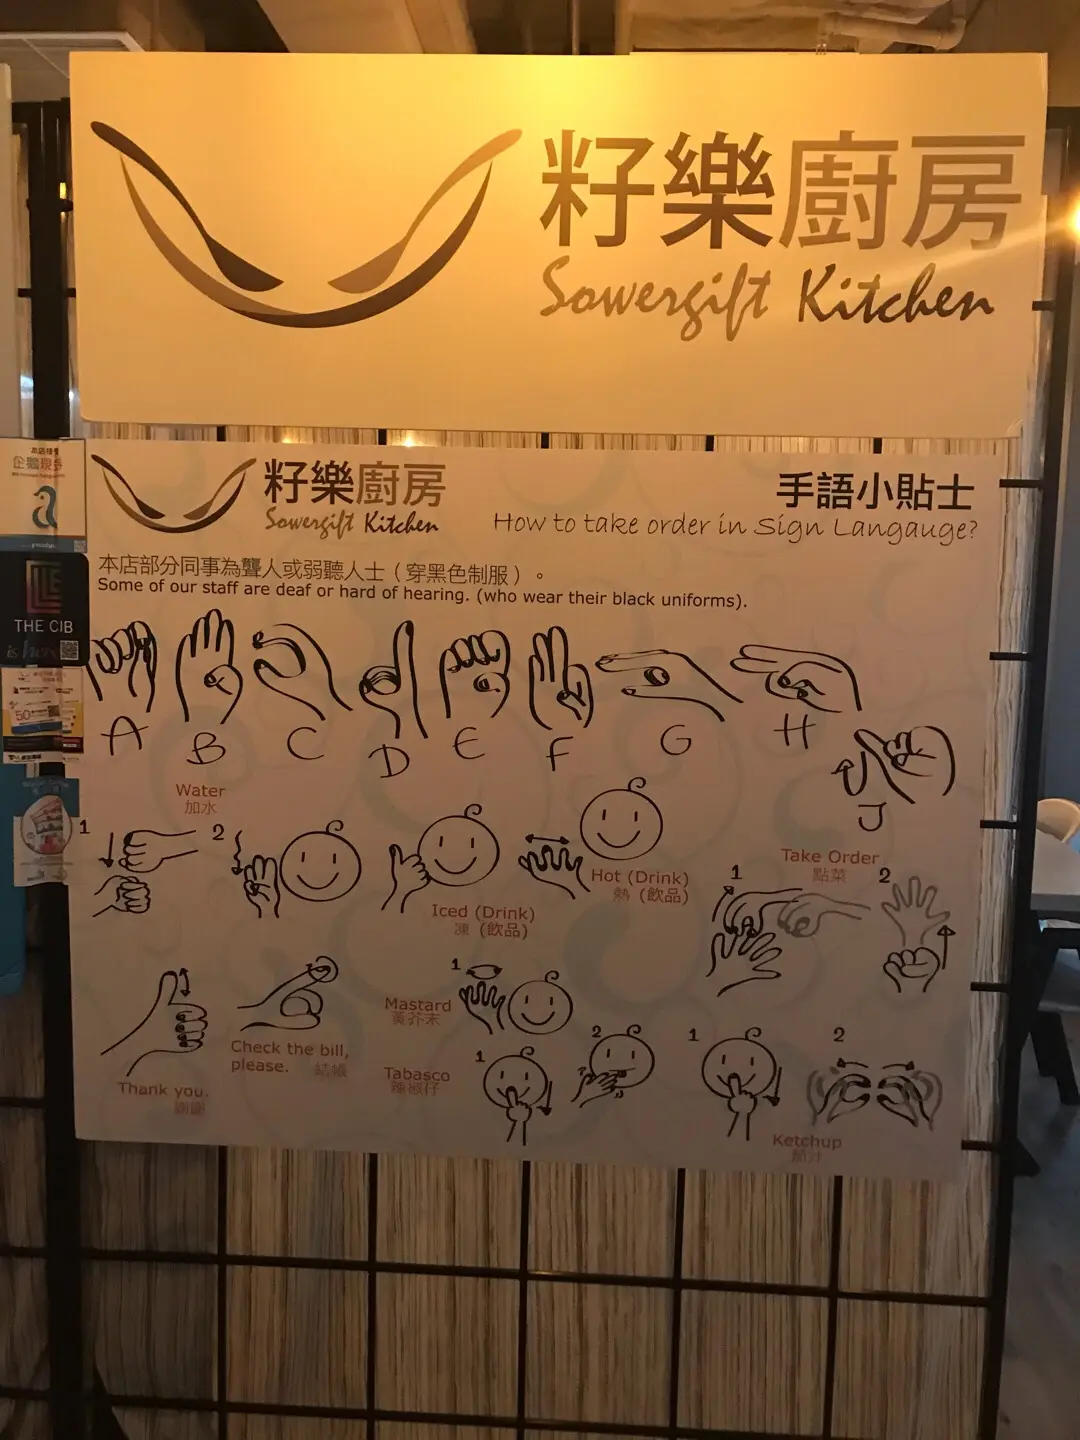 籽樂廚房
Sowergift Kitchen
籽樂廚房
Sowergift Kitchen
手語小貼士
How to take order in Sign Langauge?
本店部分同事為聾人或弱聽人士（穿黑色制服）。
Some of our staff are deaf or hard of hearing. (who wear their black uniforms).
THE CIB
is here
50
A B C D E F G H
J
Water
加水
1 2
Iced (Drink)
凍 (飲品)
Hot (Drink)
熱 (飲品)
Take Order
點菜
1 2
Thank you.
謝謝
Check the bill,
please. 結帳
Mastard
黃芥末
1
Tabasco
辣椒仔
1 2
1 2
Ketchup
茄汁